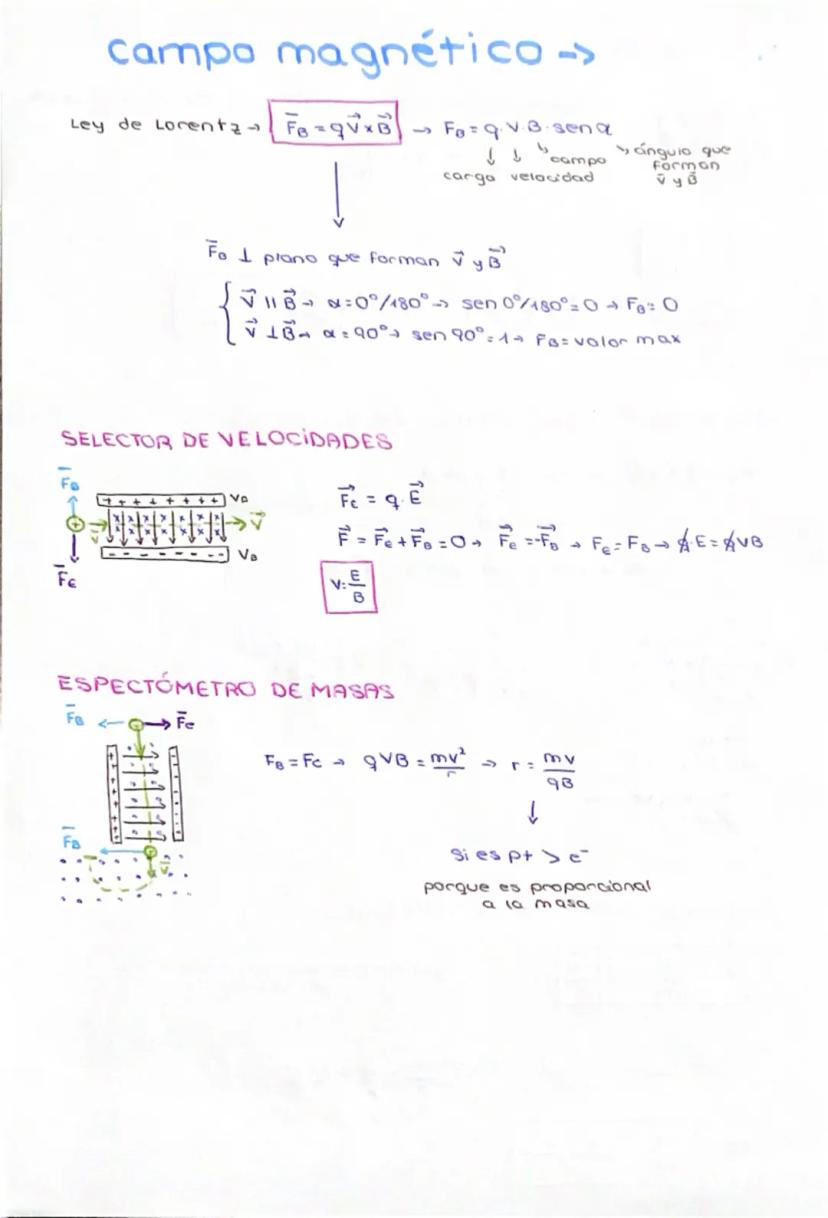 campo magnético →
Ley de Lorentz → F̅_B = q v⃗ × B⃗ → F_B = q · V · B · sen α
↓ ↓ ↘ campo ↘ ángulo que
carga velocidad forman
v̅ y B̅
↓
F̅_B ⊥ plano que forman v⃗ y B⃗
{ v⃗ || B⃗ → α = 0º/180º → sen 0º/180º = 0 → F_B = 0
v⃗ ⊥ B⃗ → α = 90º → sen 90º = 1 → F_B = valor max
SELECTOR DE VELOCIDADES
F̅_B
+ + + + + + +
F⃗e = q · E⃗
v⃗ v⃗
F⃗ = F⃗e + F⃗_B = 0 → F⃗e = -F⃗_B → Fe = F_B → q · E = q V B
- - - - - - - V_B
F̅e
V = E/B
ESPECTÓMETRO DE MASAS
F̅_B ← → F̅e
F_B = Fc → q V B = mv²/r → r = mv/qB
F̅_B
↓
Si es p+ > e⁻
porque es proporcional
a la masa